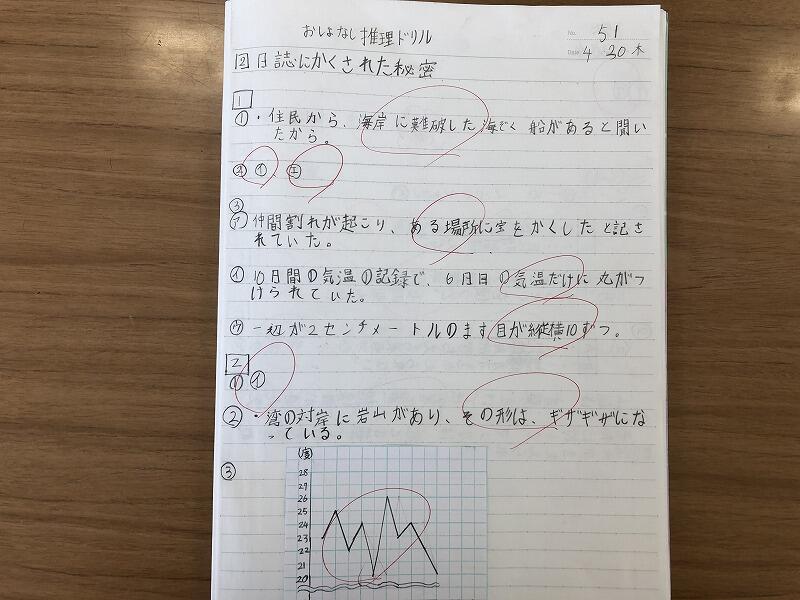 おはなし推理ドリル
No. 51
Date 4 30 木
② 日誌にかくされた秘密
1
① ・住民から、海岸に難破した海ぞく船があると聞い
たから。
② イ エ
③
ア 仲間割れが起こり、ある場所に宝をかくしたと記さ
れていた。
イ 10日間の気温の記録で、6日目の気温だけに丸がつ
けられていた。
ウ 一辺が2センチメートルのます目が縦横10ずつ。
2
① イ
② ・湾の対岸に岩山があり、その形は、ギザギザにな
っている。
③
(度)
28
27
26
25
24
23
22
21
20